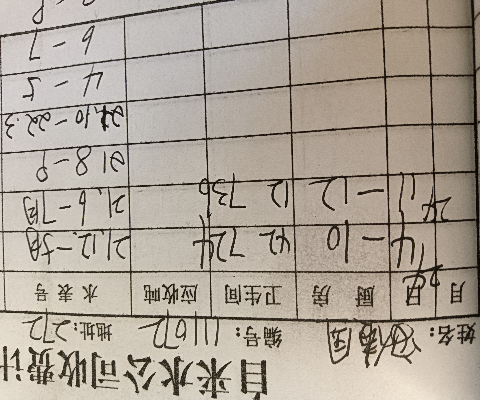 自来水公司收费计
姓名: 编号: 111072 地址: 272
月 日 厨 房 卫生间 应收吨 水表号
24 4 -10 42 724
24 11 -12 12 736 21.6-7月
21 8-9
21.10-22.3
4-5
6-7